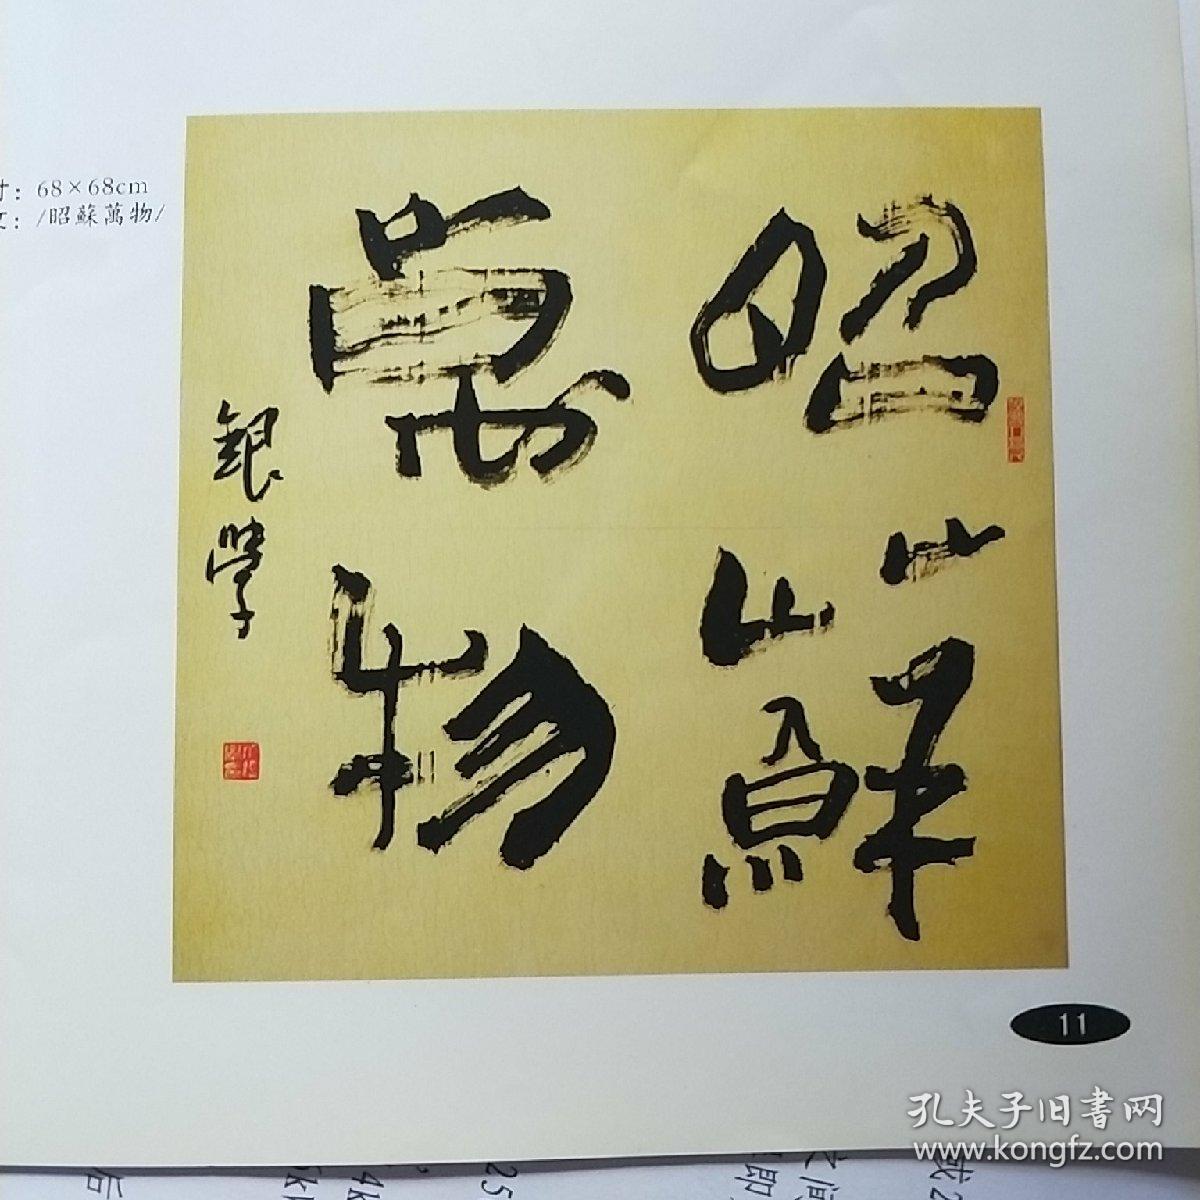 寸：68×68cm
文：/昭蘇萬物/
昭蘇
萬物
銀学
11
孔夫子旧書网
www.kongfz.com